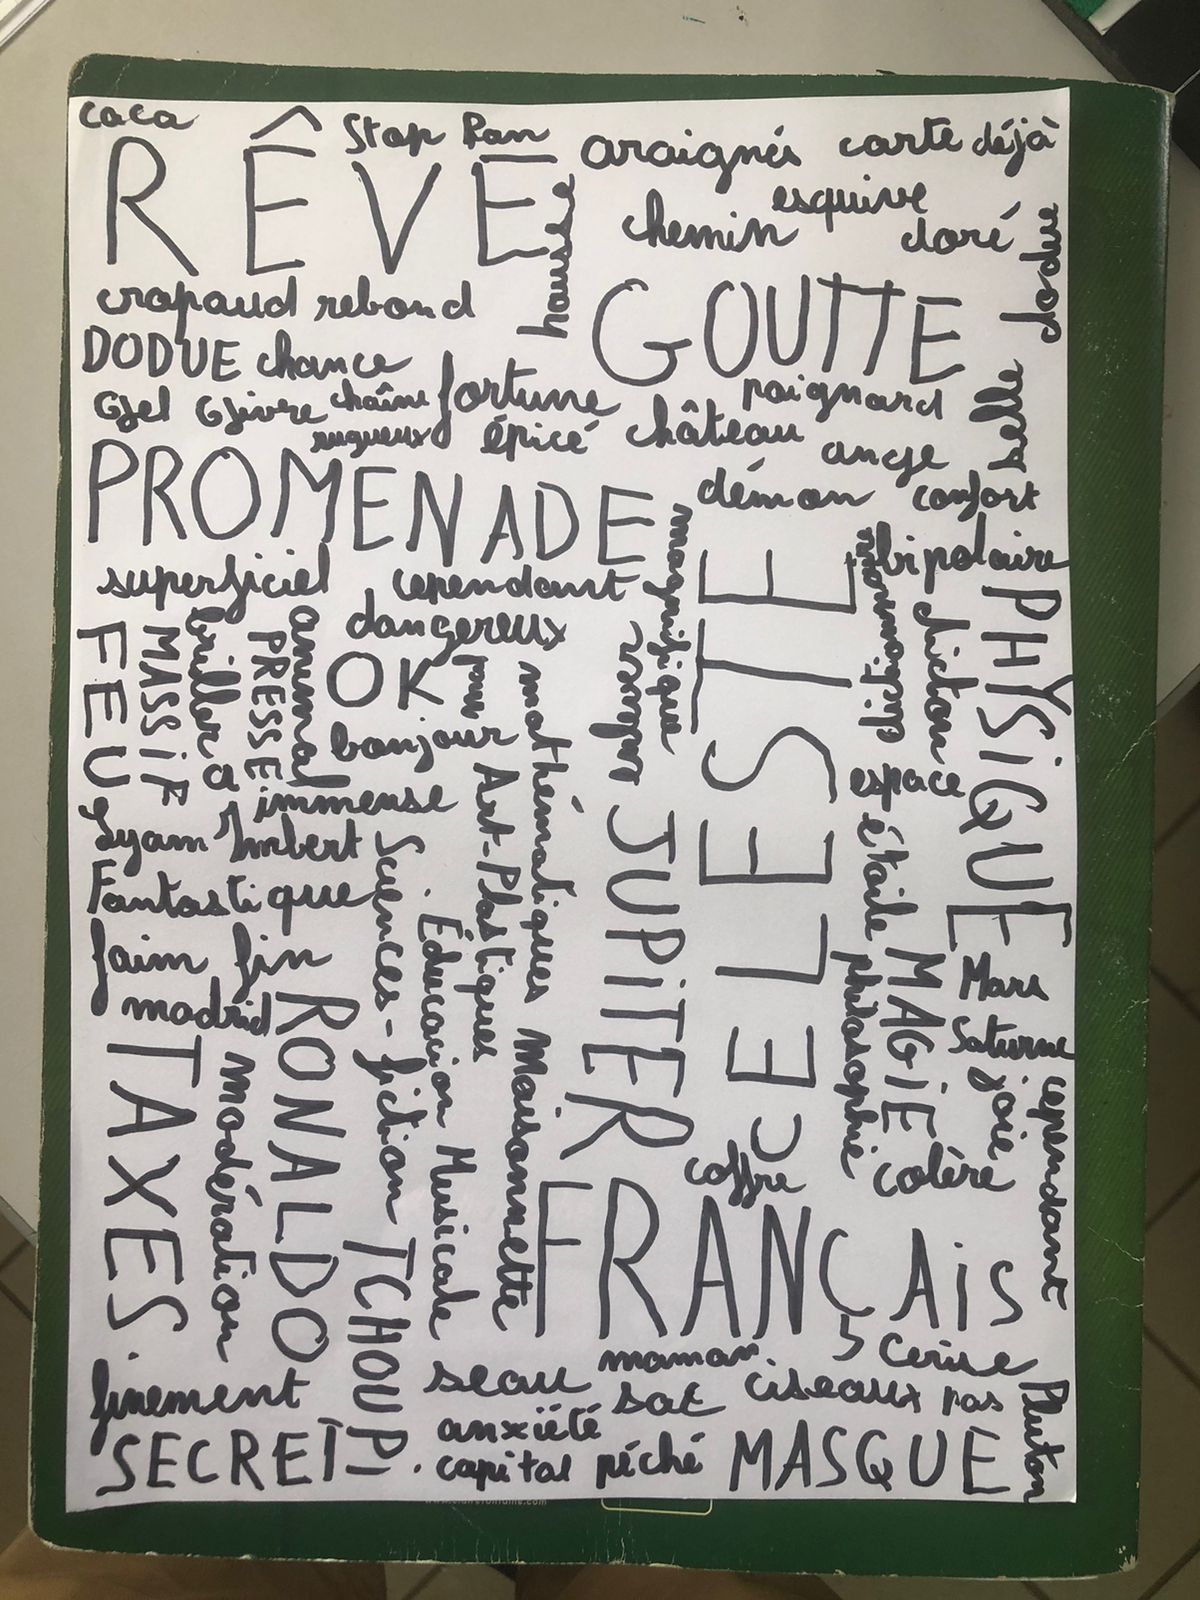 caca
Stop Ran
araignés
carte déjà
RÊVE
housse
esquive
chemin
doré
dodue
crapaud rebond
GOUTTE
DODUE chance
Gel Givre chaîne fortune
rugueux épicé château
poignard
belle
ange
PROMENADE
démon
confort
magnifique
bipolaire
superficiel
cependant
CELESTE
PHYSIQUE
dicton
dangereux
animal
briller a
PRESSE
MASSIF
FEU
OK
bonjour
immense
mathématiques
Art-Plastiques
JUPITER
espace
étoile
Lyam Imbert
Fantastique
Sciences-fiction
Éducation Musicale
faim fin
RONALDO
madrid
MAGIE
philosophie
Mars
Saturne
joie
cependant
TAXES
modération
TCHOUPI.
Maisonnette
coffre
colère
FRANÇAIS
Cerise
maman
finement
seau
sac
ciseaux pas
Pluton
SECRET
anxiété
capital péché
MASQUE